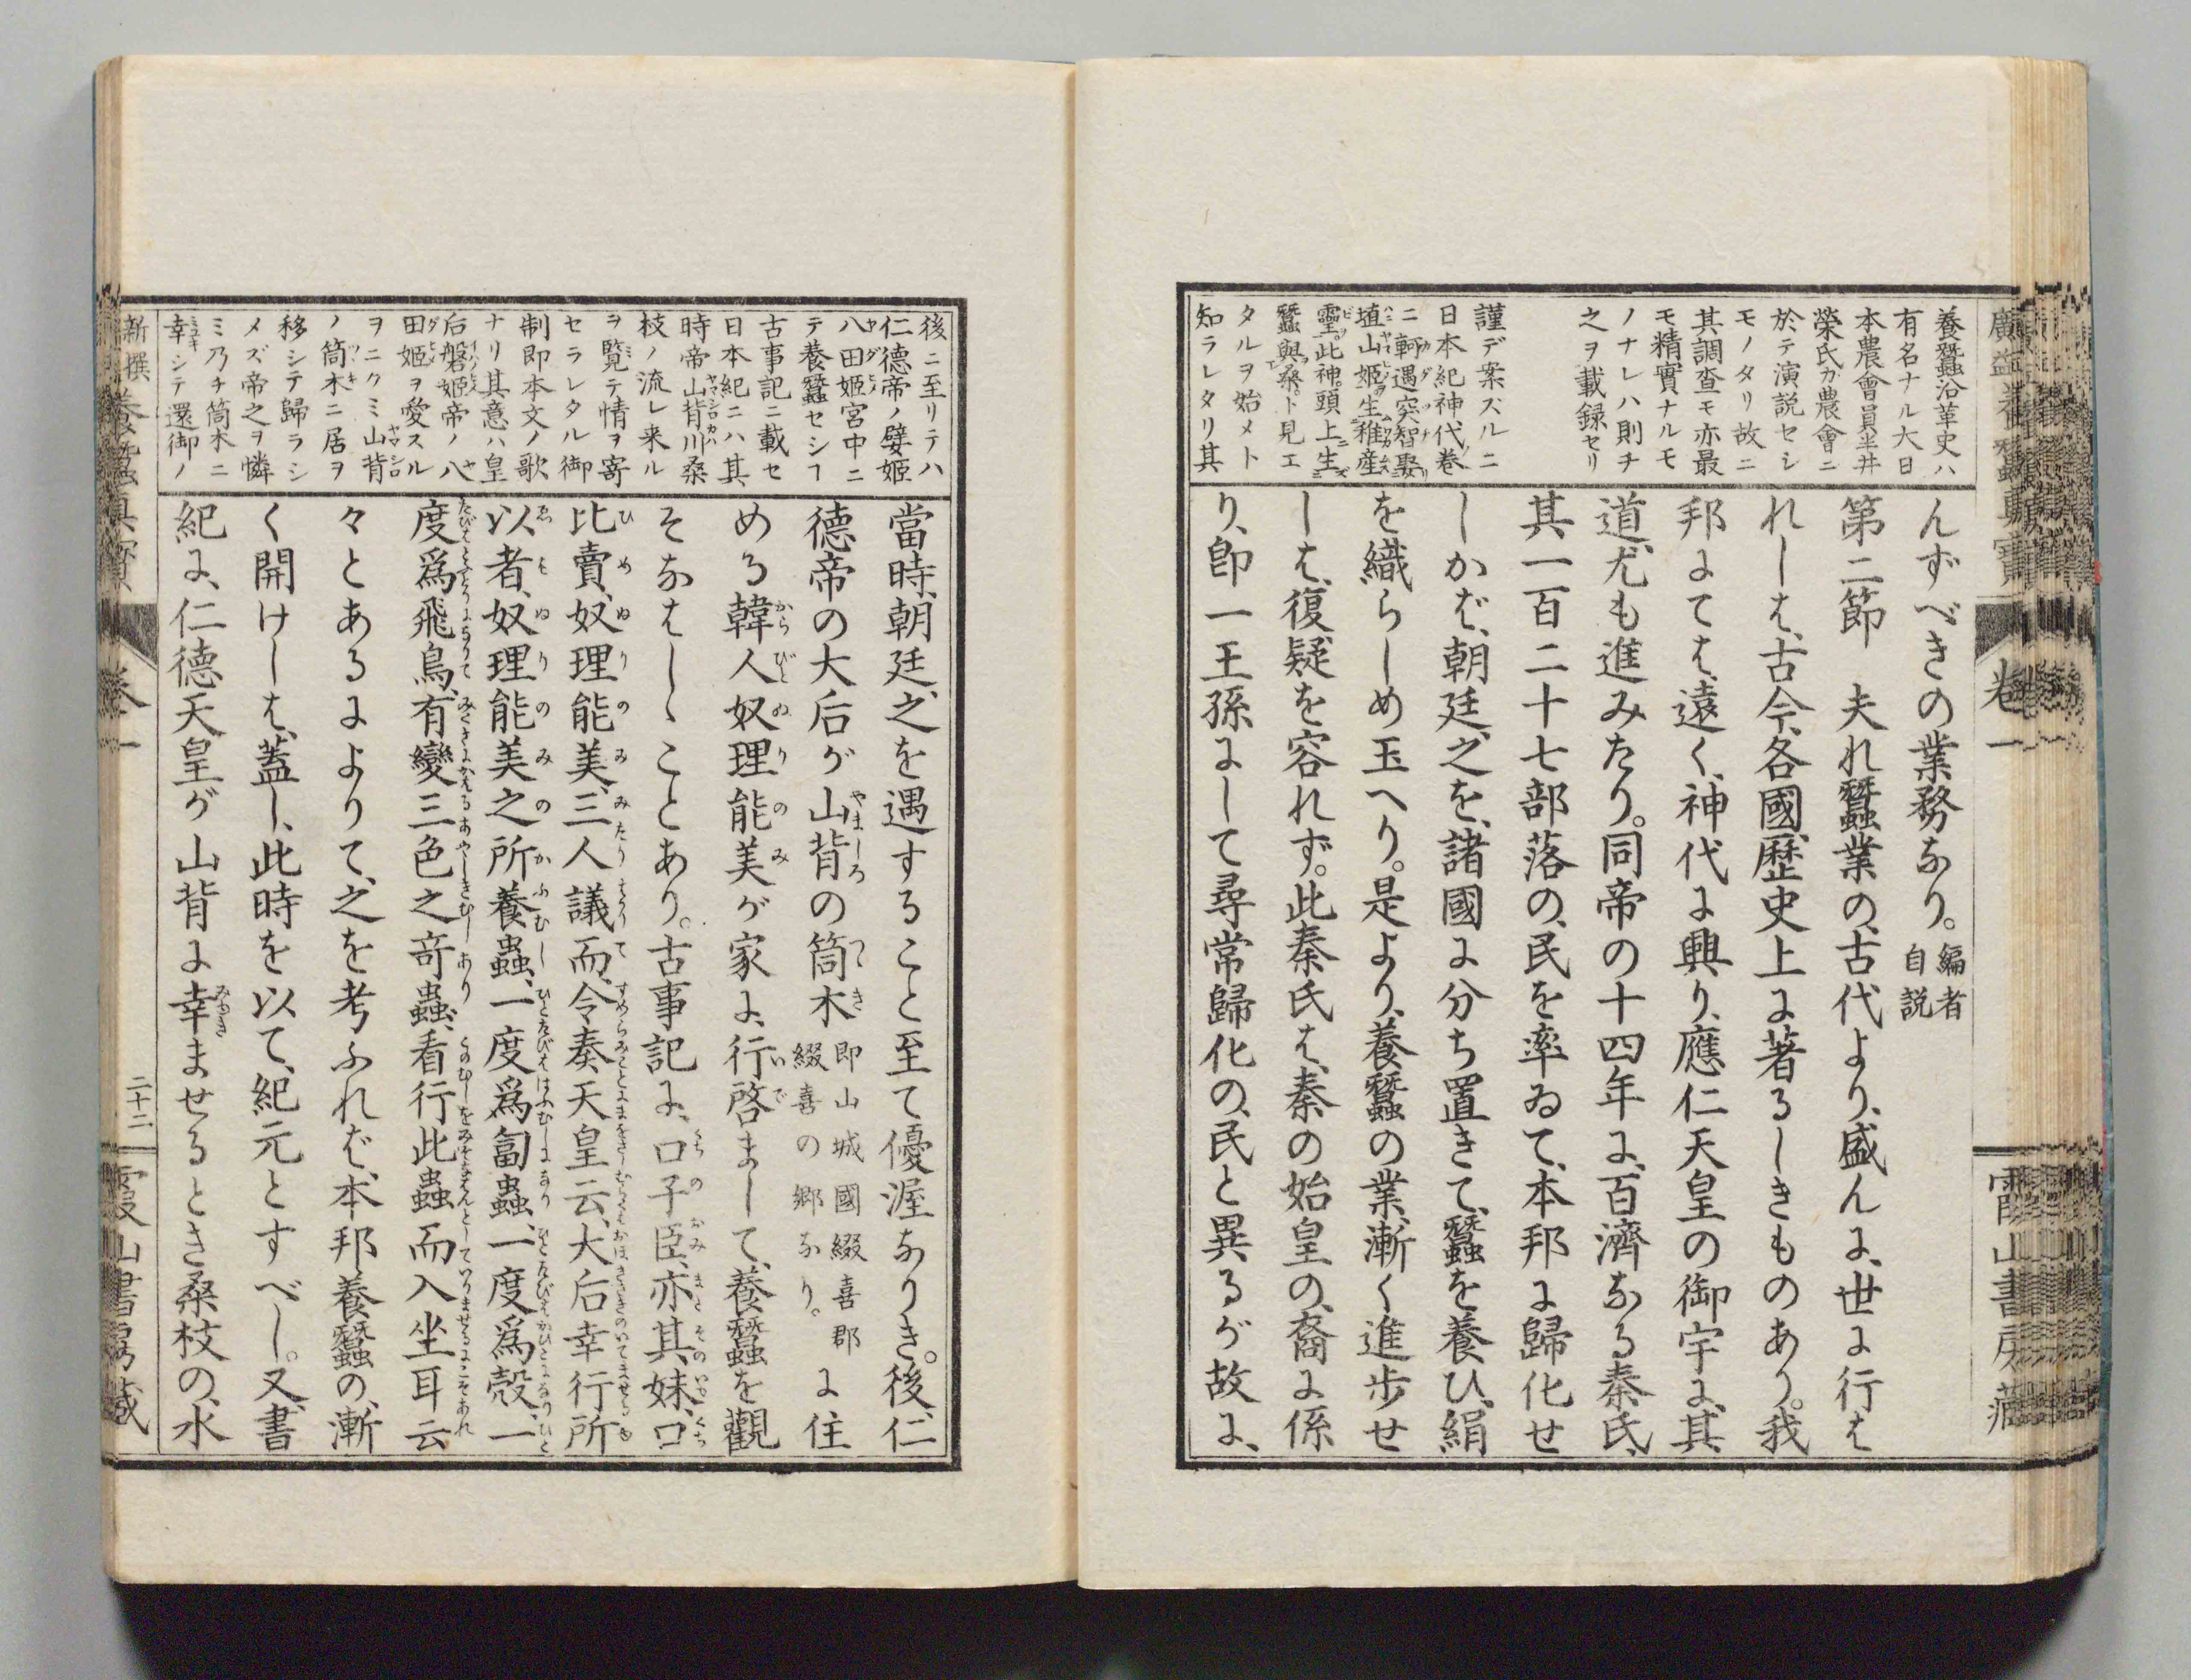 養蠶沿革史ハ
有名ナル大日
本農會員半井
榮氏カ農會ニ
於テ演説セシ
モノタリ故ニ
其調査モ亦最
モ精實ナルモ
ノナレハ則チ
之ヲ載録セリ
謹デ案ズルニ
日本紀神代ノ巻
ニ軻遇突智娶
埴山姫生稚産
靈此神頭上生
蠶與桑ト見エ
タルヲ始メト
知ラレタリ其
んずべきの業務なり。編者自説
第二節　夫れ蠶業の、古代より、盛んに、世に行は
れしは、古今、各國、歴史上に著るしきものあり。我
邦にては、遠く、神代に興り、應仁天皇の御宇に、其
道、尤も進みたり。同帝の十四年に、百濟なる秦氏、
其一百二十七部落の、民を率ゐて、本邦に歸化せ
しかば、朝廷、之を、諸國に分ち置きて、蠶を養ひ、絹
を織らしめ玉へり。是より、養蠶の業、漸く進歩せ
しは、復疑を容れず。此秦氏は、秦の始皇の、裔に係
り、卽一王孫にして尋常歸化の、民と異るが故に、
卷一
霞山書房藏
後ニ至リテハ
仁德帝ノ嬖姫
八田姫宮中ニ
テ養蠶セシヿ
古事記ニ載セ
日本紀ニハ其
時帝山背川桑
枝ノ流レ来ル
ヲ覧テ情ヲ寄
セラレタル御
制即本文ノ歌
ナリ其意ハ皇
后磐姫帝ノ八
田姫ヲ愛スル
ヲニクミ山背
ノ筒木ニ居ヲ
移シテ歸ラシ
メズ帝之ヲ憐
ミ乃チ筒木ニ
幸シテ還御ノ
當時、朝廷、之を遇すること至て優渥なりき。後、仁
德帝の大后が山背の筒木卽山城國綴喜郡綴喜の郷なり。に、住
める韓人奴理能美が家に、行啓まして、養蠶を觀
そなはしゝことあり。古事記に、口子臣、亦其妹、口
比賣、奴理能美、三人議而、令奏天皇云、大后幸行所
以者、奴理能美之所養蟲、一度爲匐蟲、一度爲殻、一
度爲飛鳥、有變三色之奇蟲、看行此蟲而入坐耳云
々とあるによりて、之を考ふれば、本邦養蠶の、漸
く開けしは、蓋し、此時を以て、紀元とすべし。又、書
紀に、仁德天皇が山背に幸ませるとき桑枝の、水
新撰養蠶眞寶
卷一
二十二
霞山書房藏